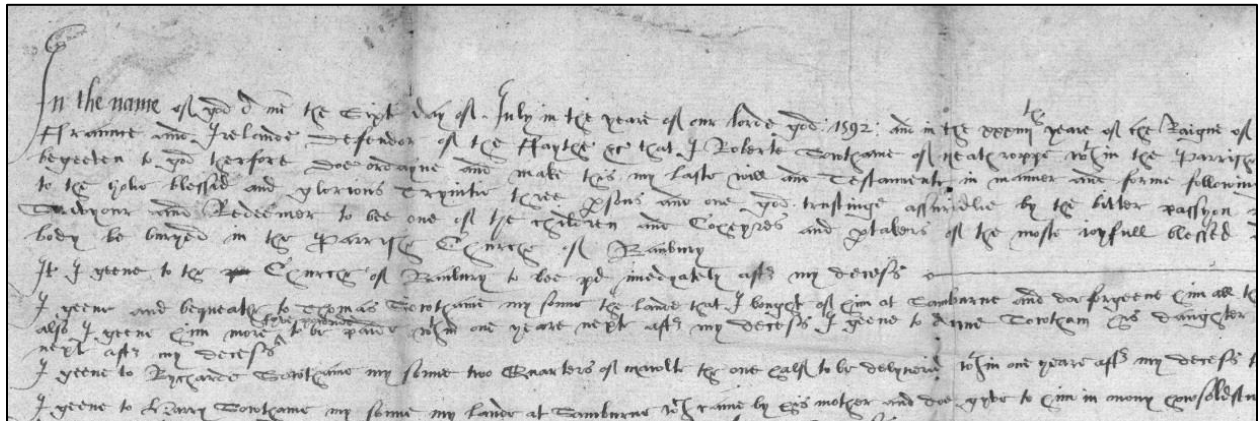 In the name of god Amē the Sixt day of July in the yeare of our lorde god: 1592: and in the xxxiiijth yeare of the Raigne of
Fraunce and Irelande Defendor of the Faythe &c that I Roberte of neathroppe wthin the Parrishe
to god therfore doe ordayne and make this my laste will and Testamente in manner and forme followin
to the holie blessed and glorious Trynitie three psons and one god: trustinge assuridlie by the bitter passyon
and Redeemer to bee one of the children and Coheyres and ptakers of the moste ioyfull blessed
body be buryed in the Parrishe Churche of Banbury
It I geeve to the Churche of Banbury to bee pd imediately aftr my decess
I geeve and bequeath to Thomas my sonne the lande that I bought of him at and doe forgeeve him all th
also I geeve him more to be paide wthin one yeare next aftr my decess I geeve to Anne his daughter
next aftr my decess
I geeve to Rycharde my sonne two Quarters of maulte the one halfe to be delyvered wthin one yeare aftr my decess
I geeve to Harry my sonne my lande at wch came by his mother and doe gyve to him in mony